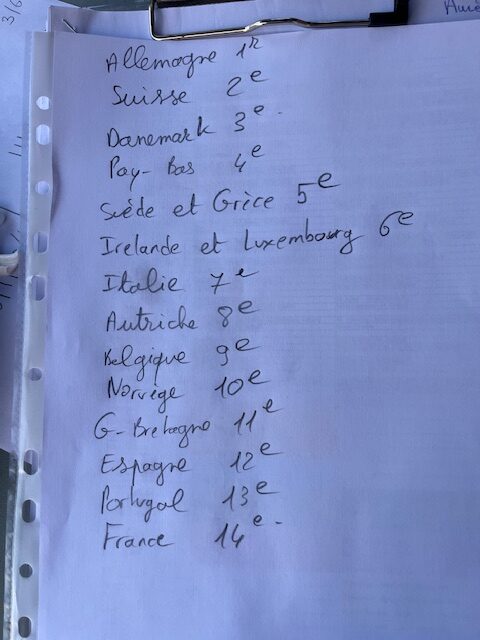 Allemagne 1r
Suisse 2e
Danemark 3e.
Pay-Bas 4e
Suède et Grèce 5e
Irelande et Luxembourg 6e
Italie 7e
Autriche 8e
Belgique 9e
Norvège 10e
G-Bretagne 11e
Espagne 12e
Portugal 13e
France 14e.